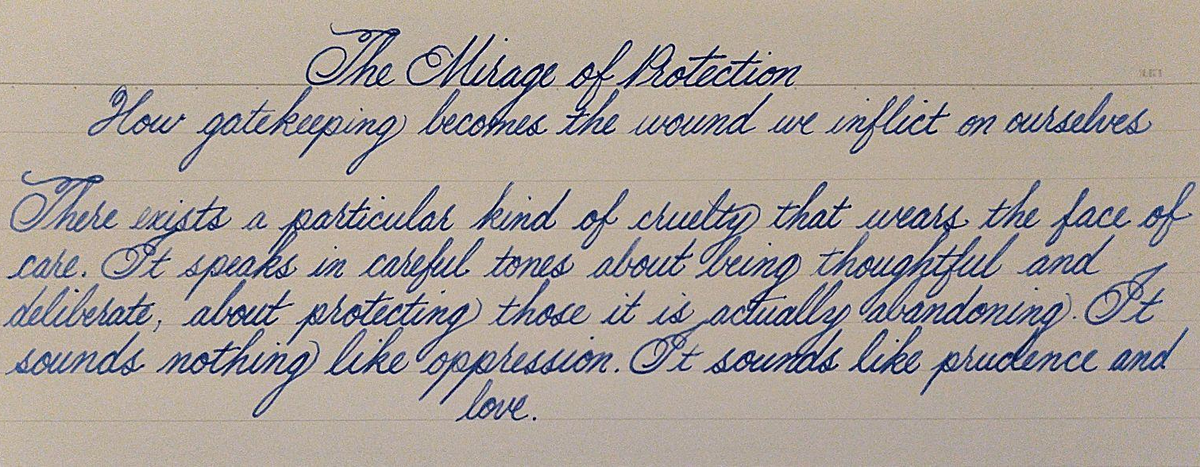 The Mirage of Protection
How gatekeeping becomes the wound we inflict on ourselves
There exists a particular kind of cruelty that wears the face of
care. It speaks in careful tones about being thoughtful and
deliberate, about protecting those it is actually abandoning. It
sounds nothing like oppression. It sounds like prudence and
love.